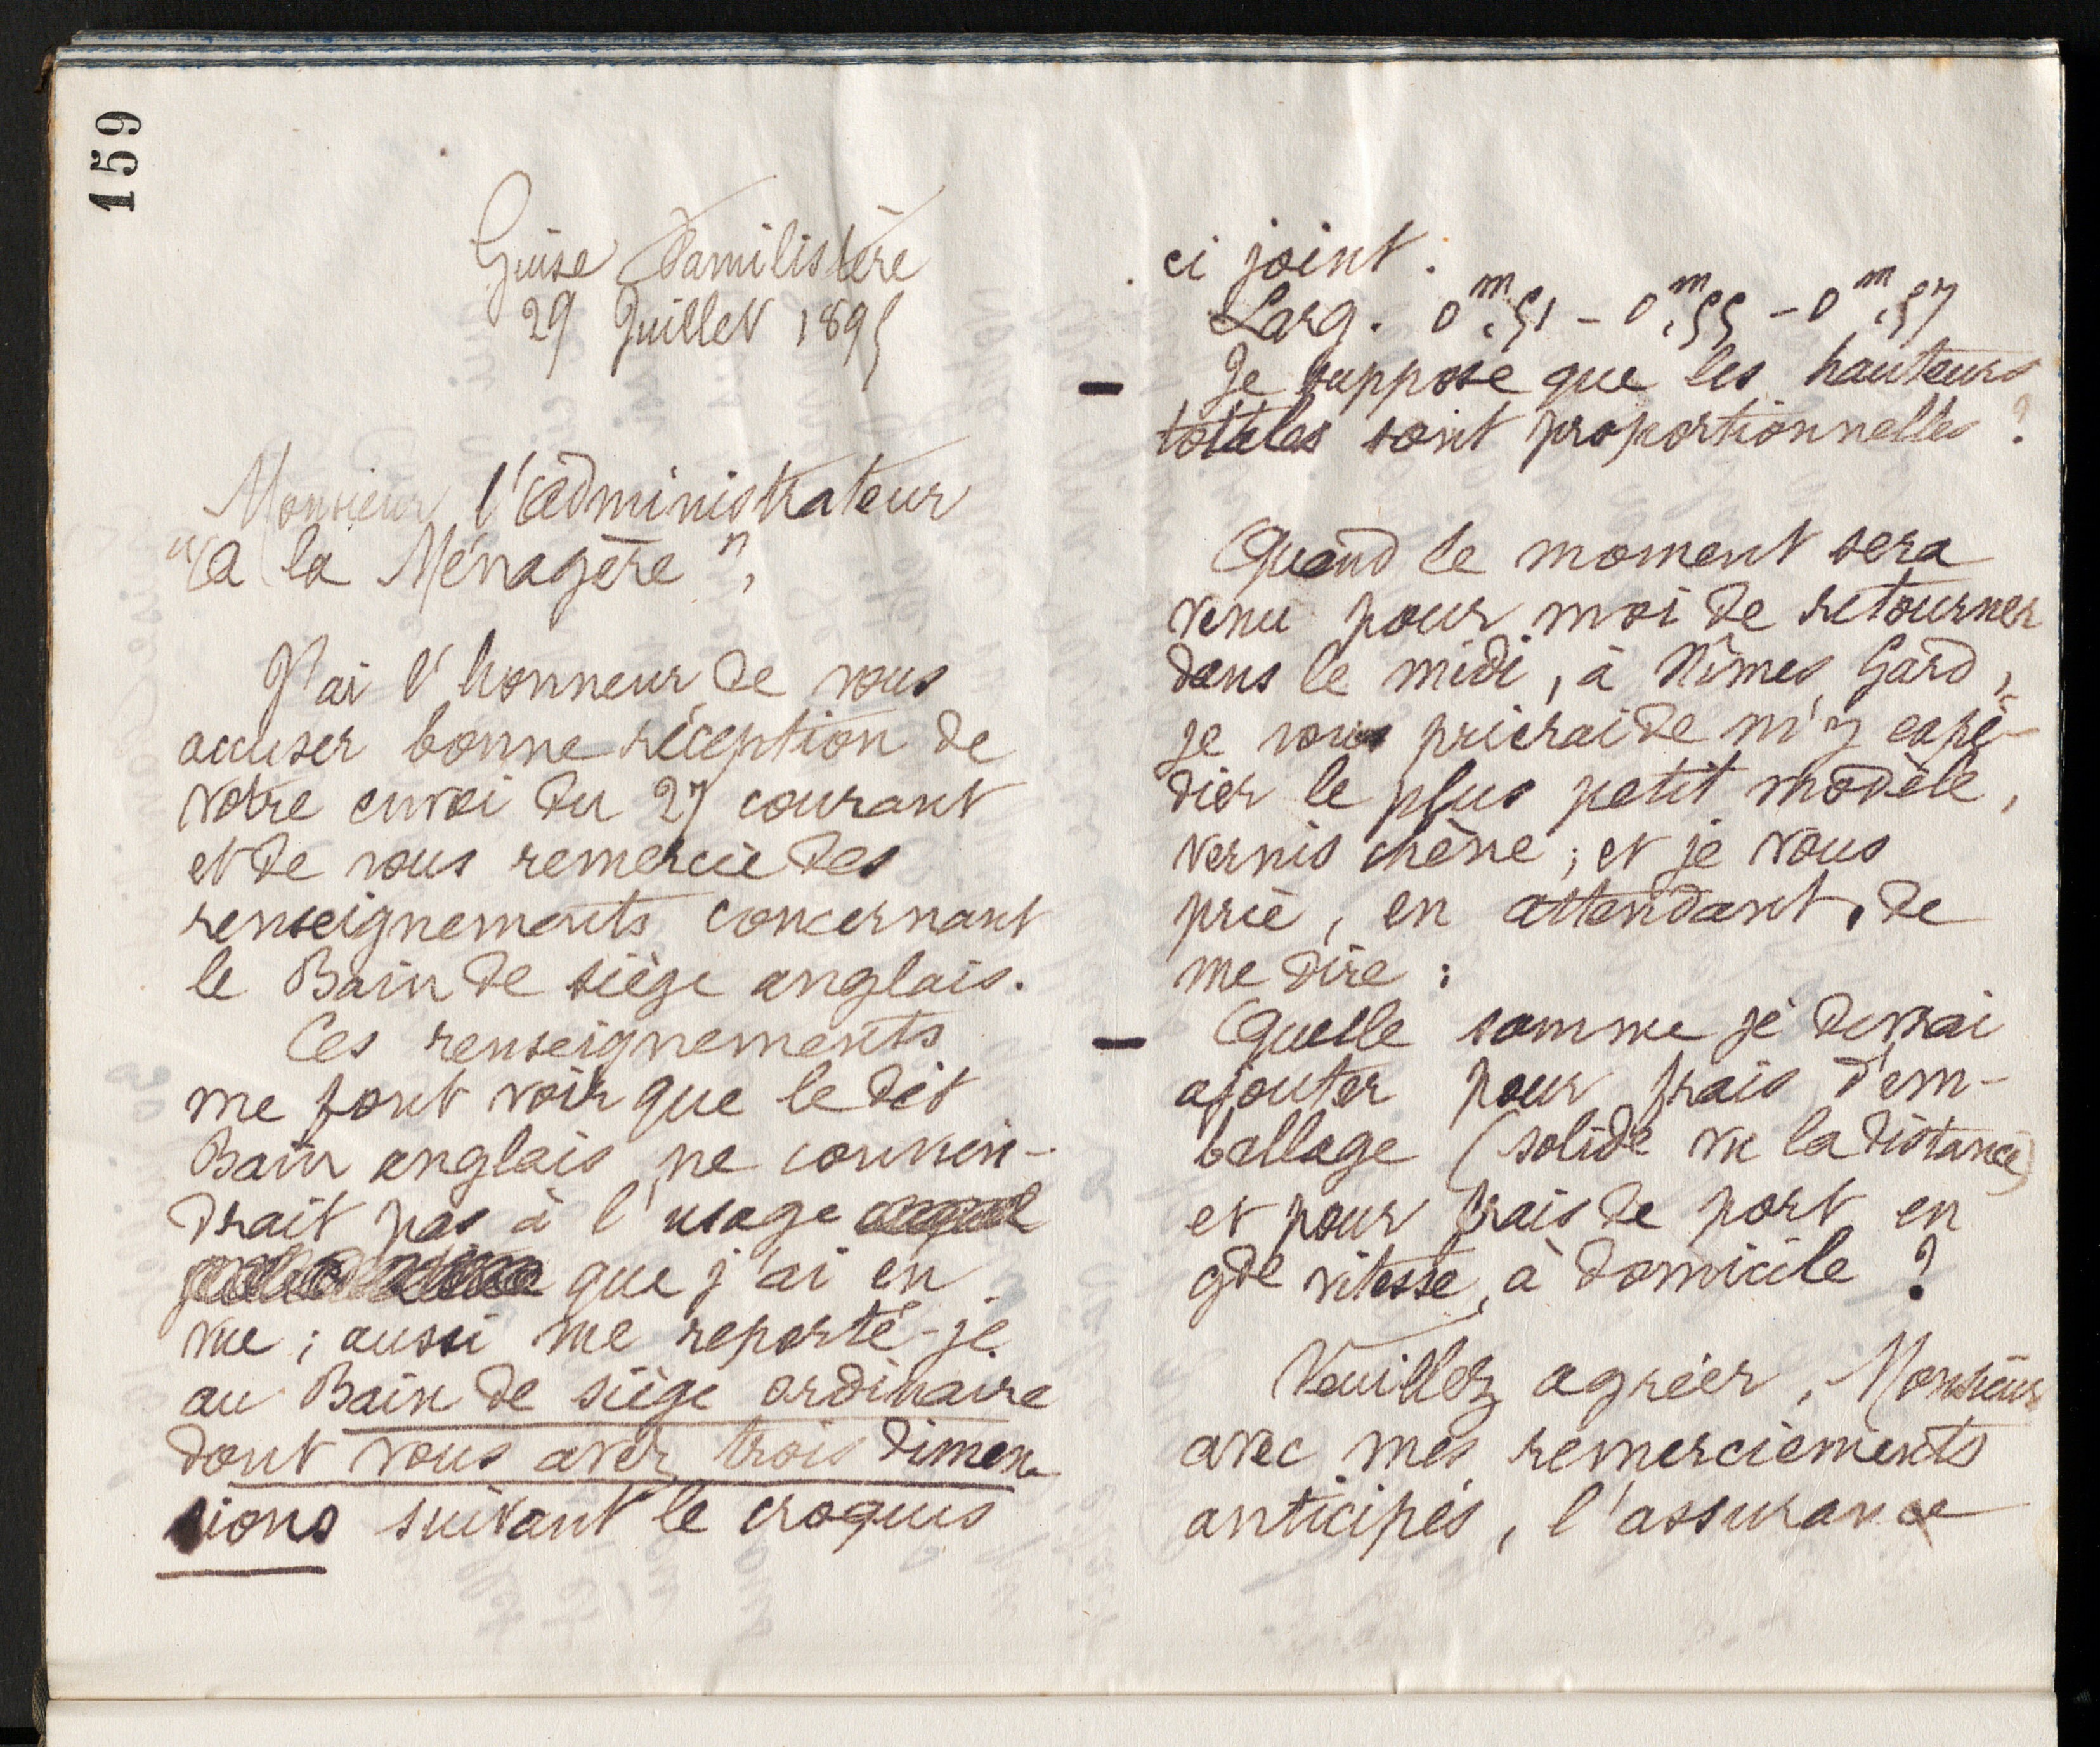 159
Guise Familistère
29 Juillet 1895
Monsieur l'administrateur
"A la Ménagère",
J'ai l'honneur de vous
accuser bonne réception de
votre envoi du 27 courant
et de vous remercie des
renseignements concernant
le Bain de siège anglais.
Ces renseignements
me font voir que le dit
Bain anglais ne convien-
drait pas à l'usage
que j'ai en
vue ; aussi me reporté-je
au Bain de siège ordinaire
dont vous avez trois dimen-
sions suivant le croquis
ci joint.
Larg. 0m,51 - 0m,55 - 0m,57
Je suppose que les hauteurs
totales sont proportionnelles ?
Quand le moment sera
venu pour moi de retourner
dans le midi, à Nîmes, Gard,
je vous prierai de m'y expé-
dier le plus petit modèle,
vernis chêne ; et je vous
prie, en attendant, de
me dire :
Quelle somme je devrai
ajouter pour frais d'em-
ballage (solide vu la distance)
et pour frais de port en
gde vitesse, à domicile ?
Veuillez agréer, Monsieur
avec mes remerciements
anticipés, l'assurance